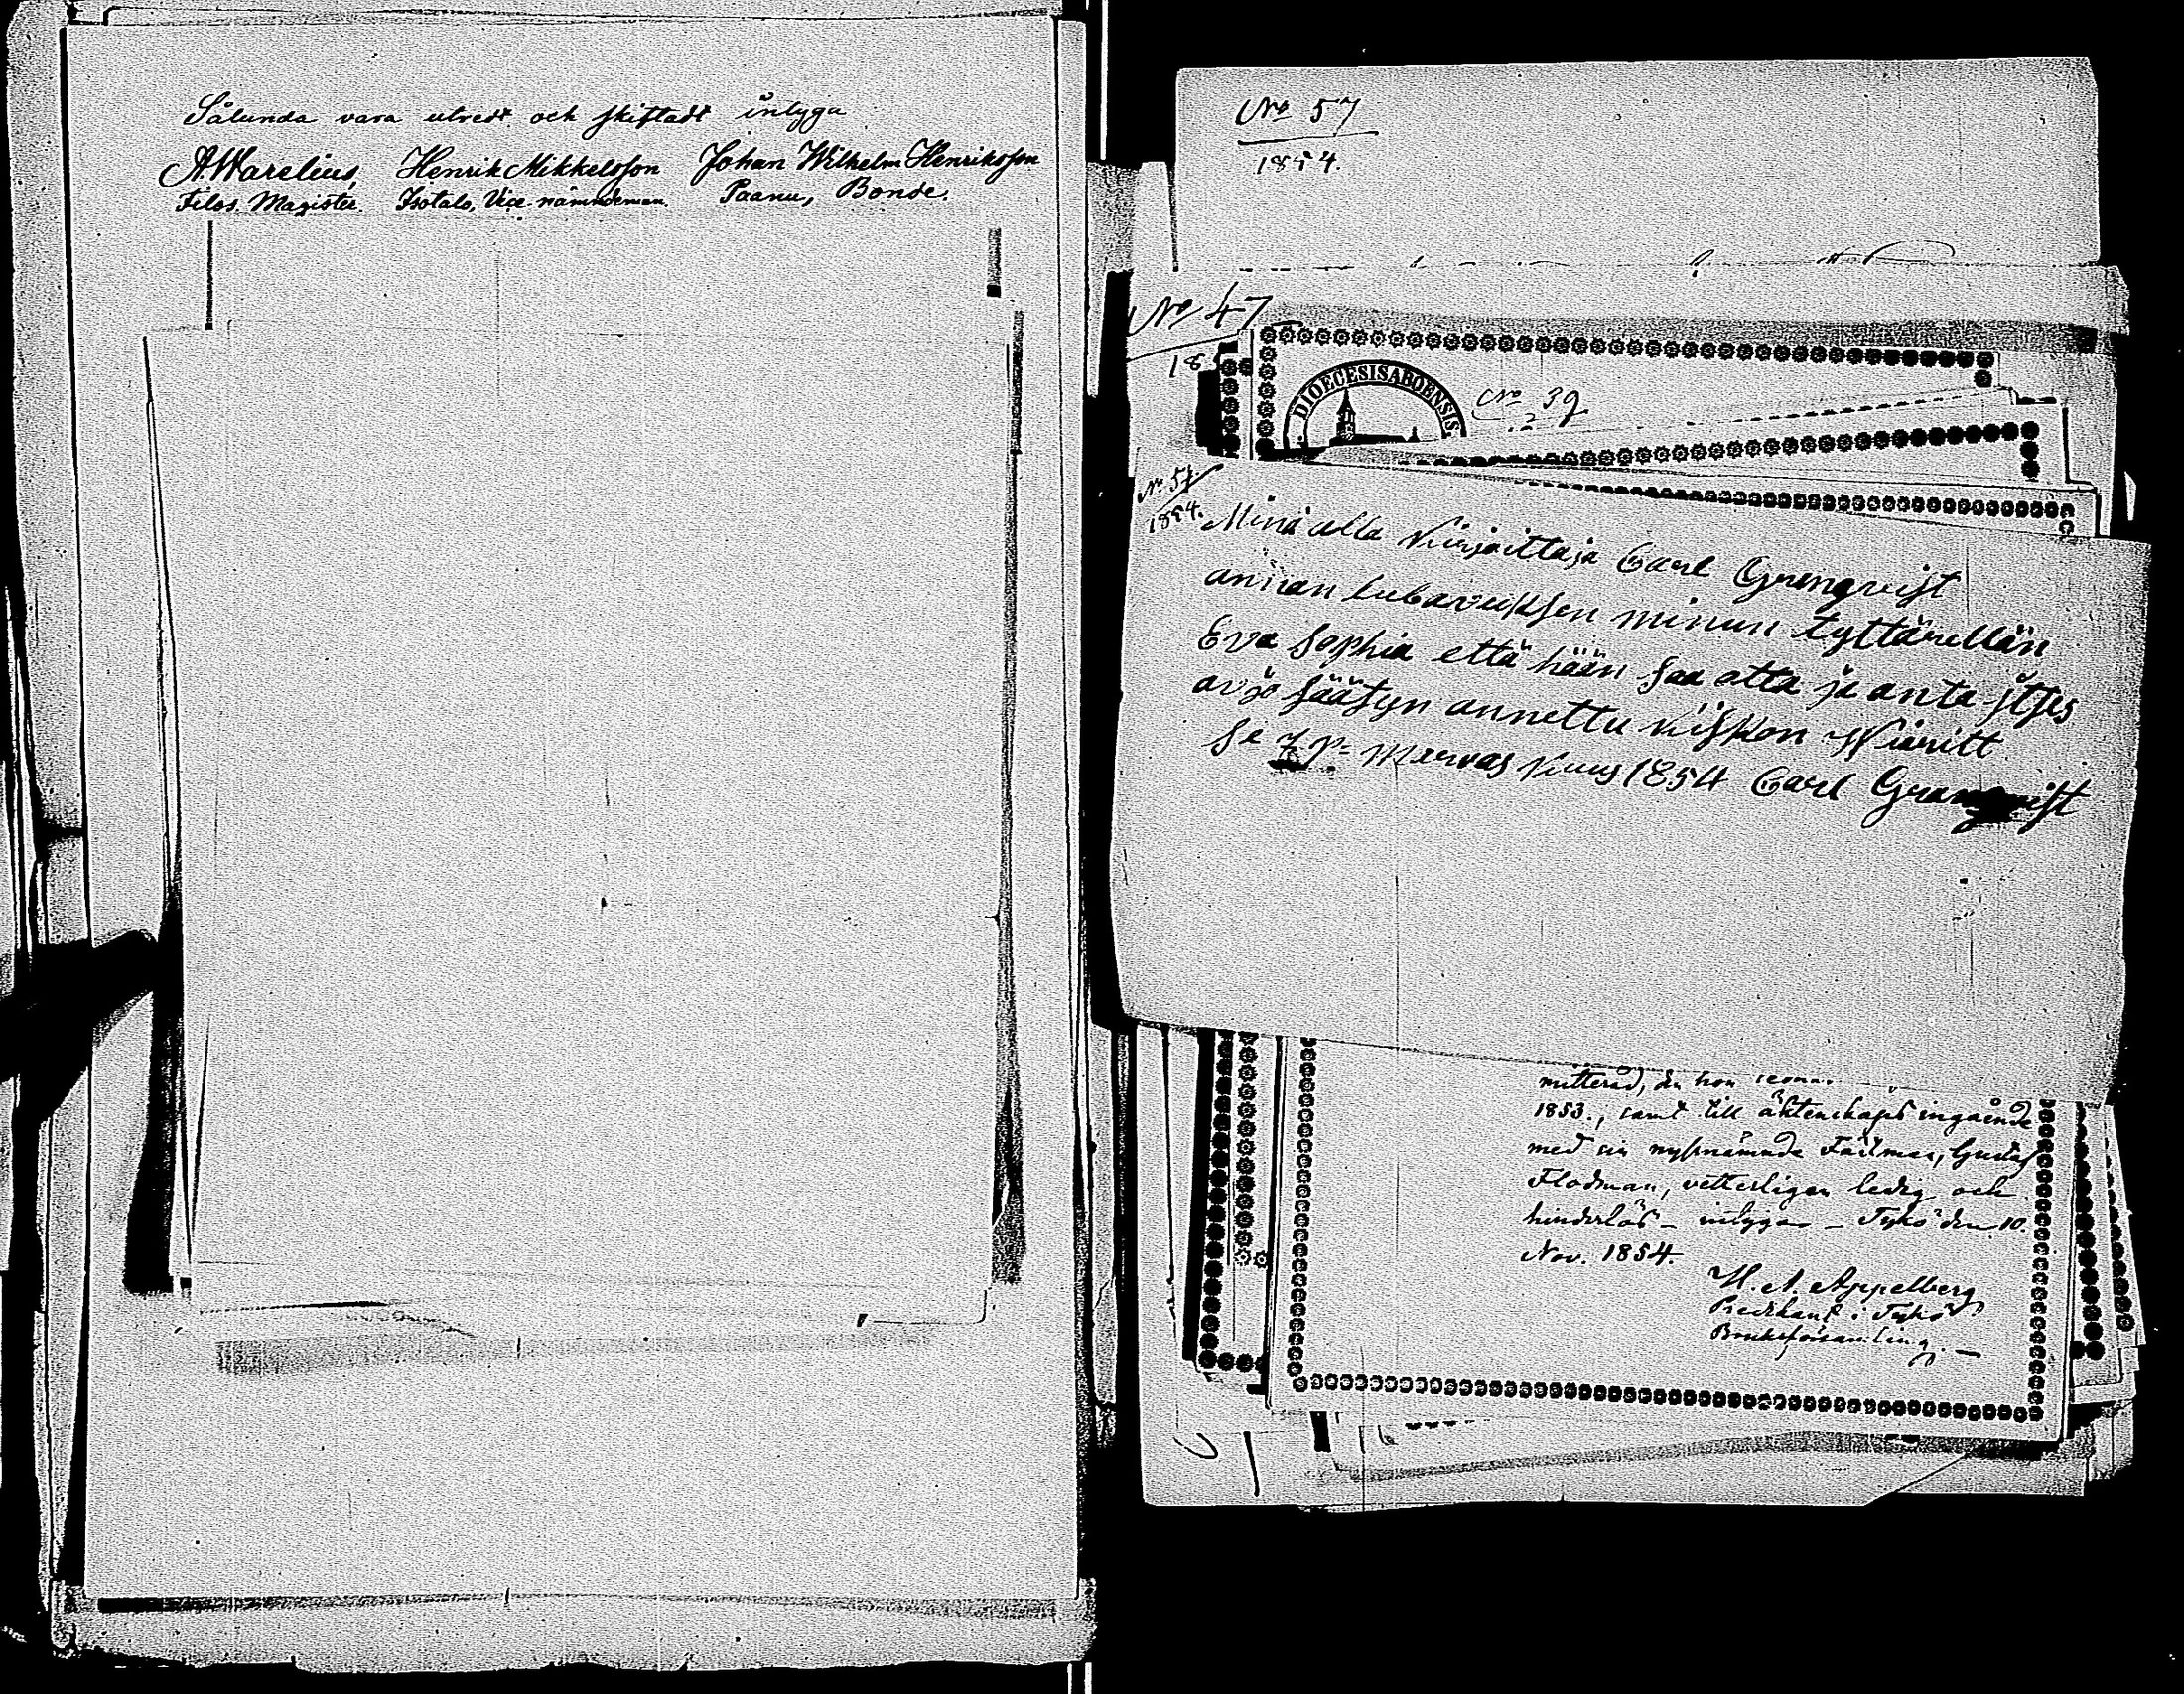 Sålunda vara utredt och skiftadt intyga
A Warelius, Henrik Mikkelsson Johan Wilhelm Henriksson
Filos. Magister. Isotalo, Vice nämndeman. Paanu, Bonde.
No 57
1854.
No 47
18
DIOECESIS ABOENSIS
No 39
No 57.
1854.
Minä alla Kirjoittaja Carl Grenqvist
annan lubavuksen minun tyttärellän
Eva Sophia että hään saa otta ja anta itses
avjo säätyn annettu Kiskon Wiiritt
se 7 p= Marras Kuus 1854 Carl Granqvist
mitterad, då hon
1853., samt till äktenskaps ingående
med sin nysnämnde Fästman, Gustaf
Flodman, vetterligen ledig och
hinderlös – intygar – Tykö den 10.
Nov. 1854.
H. A. Appelberg
Predikant i Tykö
Bruksförsamling. —